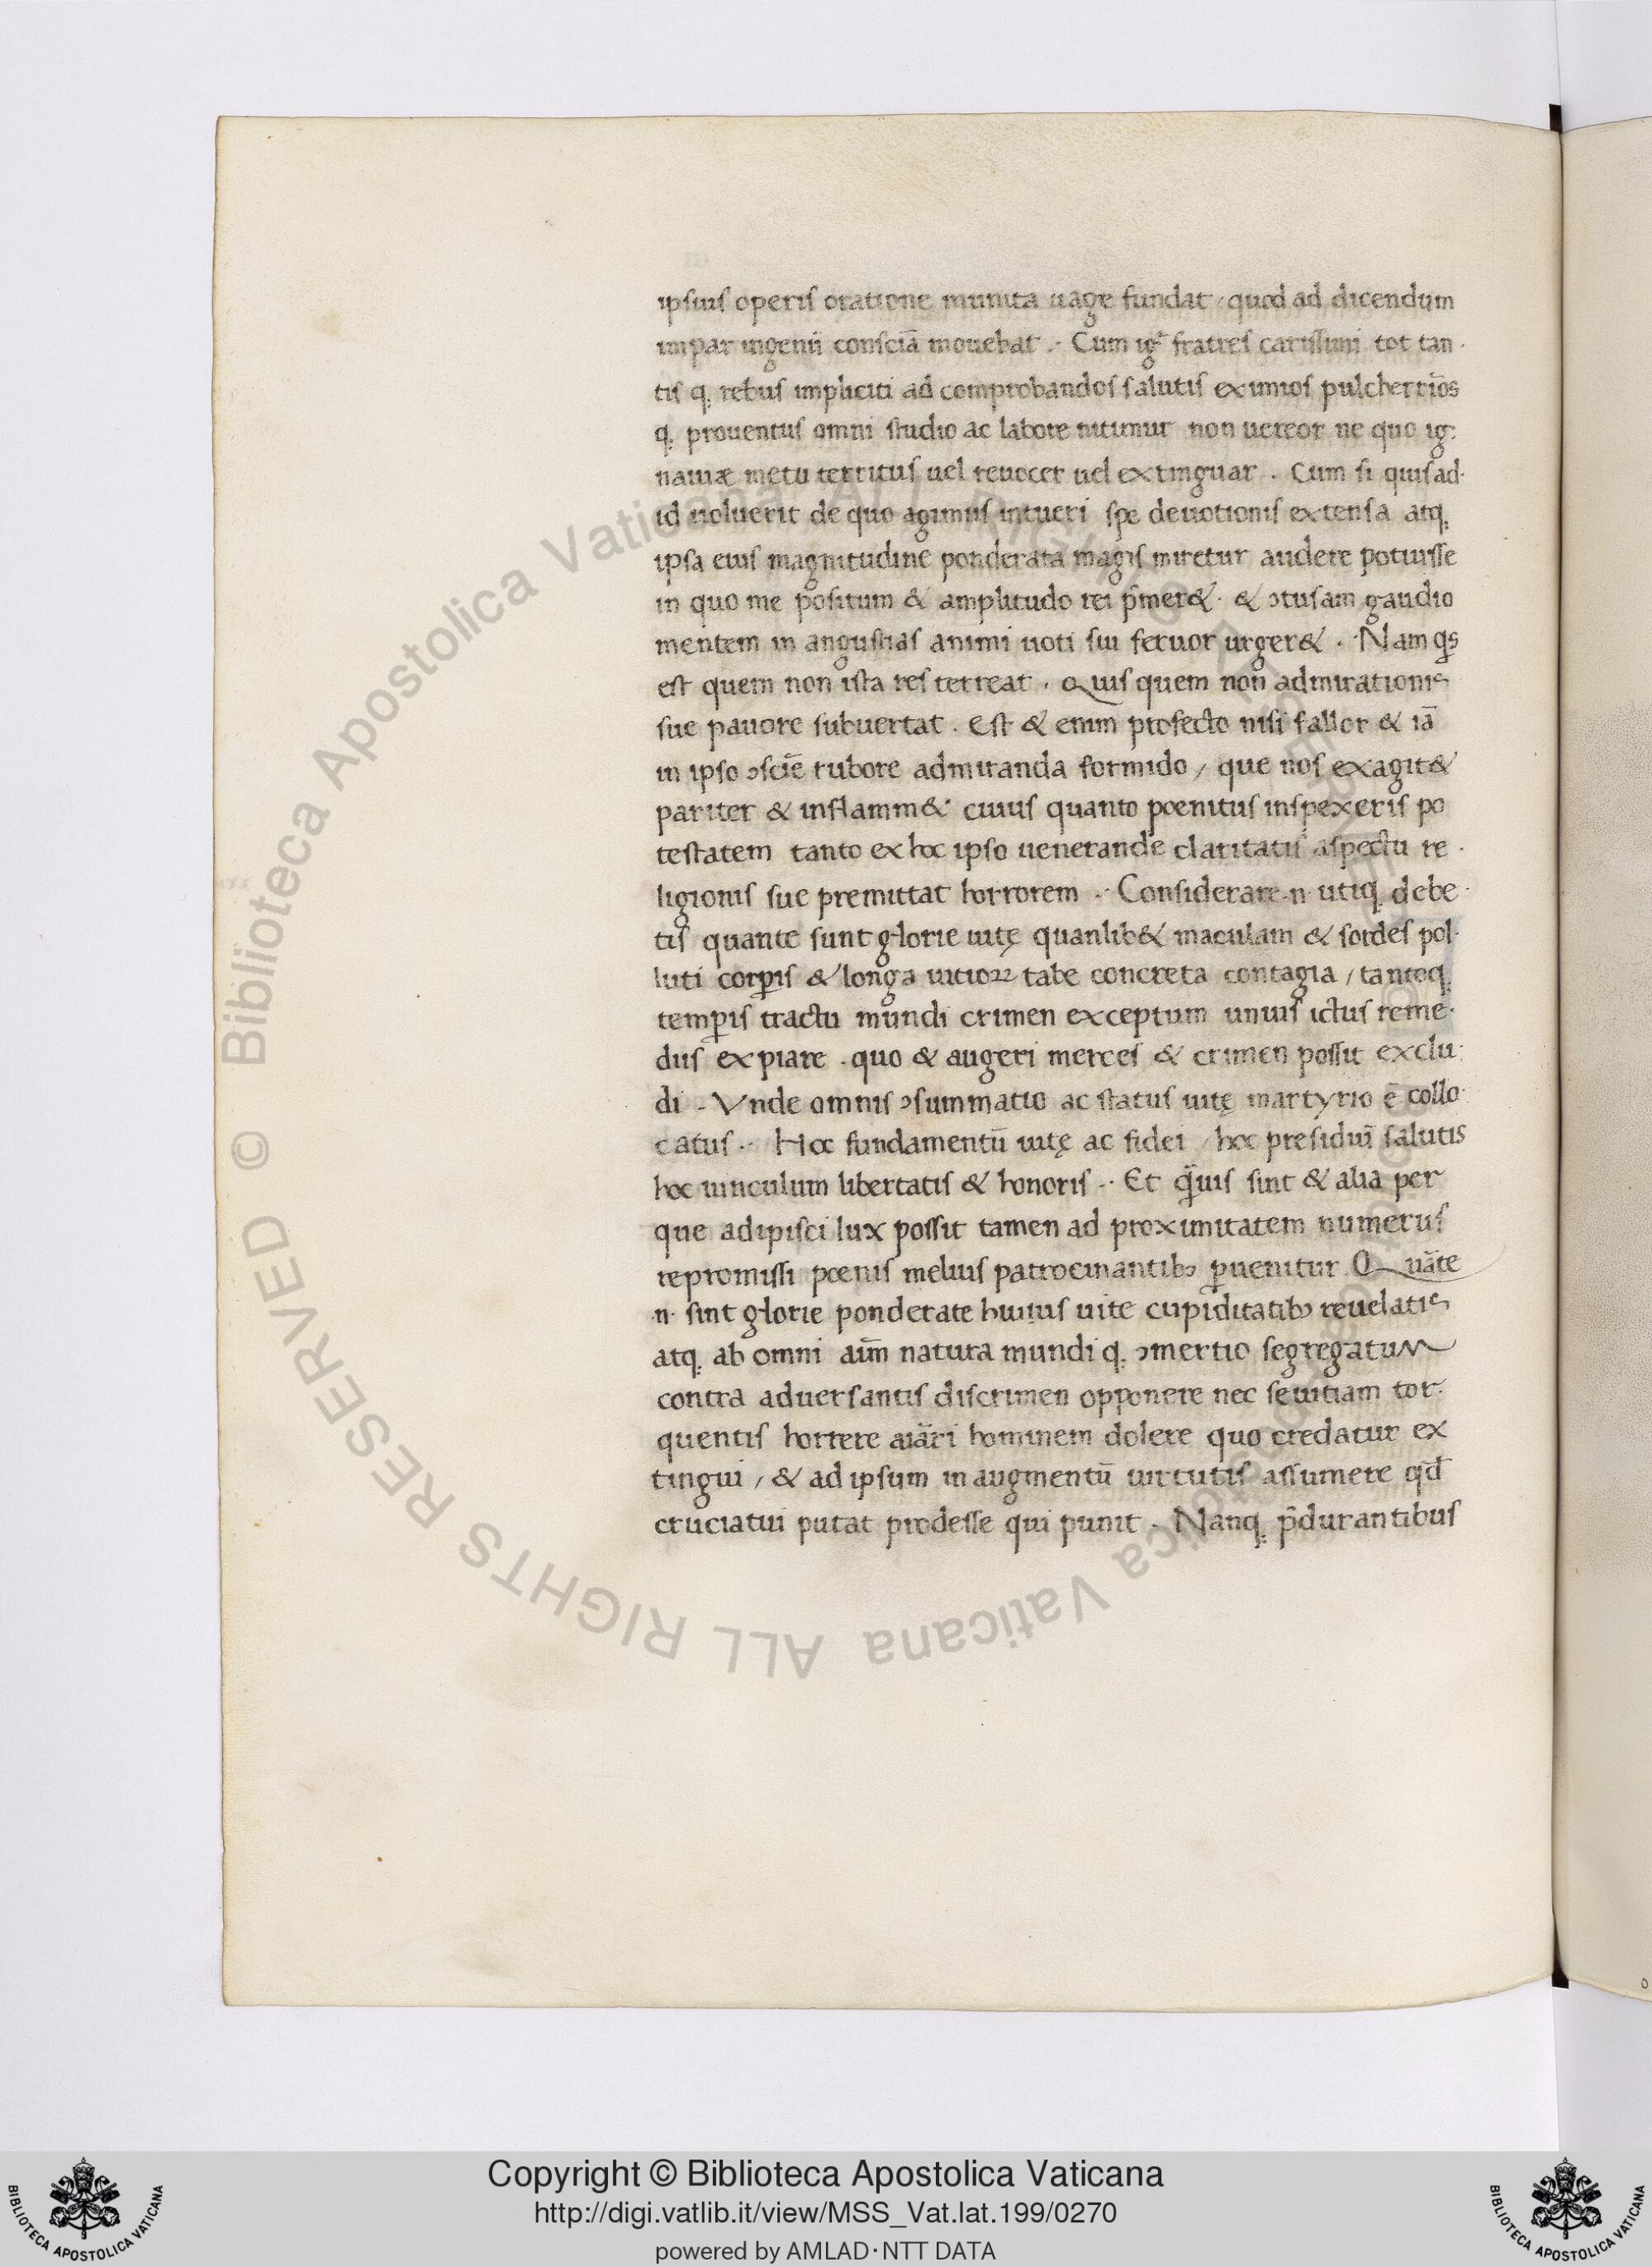 ipsius operis oratione munita uage fundat / quod ad dicendum
impar ingenii consciā mouebat . Cum igr̄ fratres carissimi tot tan
tis q; rebus impliciti ad comprobandos salutis eximios pulcherrīos
q; prouentus omni studio ac labore nitimur non uereor ne quo ig
nauiæ metu territus uel reuocer uel extinguar . Cum si quis ad
id uoluerit de quo agimus intueri spe deuotionis extensa atq;
ipsa eius magnitudine ponderata magis miretur audere potuisse
in quo me positum & amplitudo rei p̄mer& . & ɔtusam gaudio
mentem in angustias animi uoti sui feruor urger& . Nam q̄s
est quem non ista res terreat . Quis quem non admirationis
sue pauore subuertat . Est & enim profecto nisi fallor & iā
in ipso ɔsciē rubore admiranda formido / que nos exagit&
pariter & inflamm& cuius quanto poenitus inspexeris po
testatem tanto ex hoc ipso uenerande claritatis aspectu re
ligionis sue premittat horrorem . Considerare .n. utiq; debe
tis quante sunt glorie uitę quanlib& maculam & sordes pol
luti corꝑis & longa uitioꝝ tabe concreta contagia / tantoq;
temꝑis tractu mundi crimen exceptum unius ictus reme
diis expiare . quo & augeri merces & crimen possit exclu
di . Vnde omnis ɔsummatio ac status uitę martyrio ē collo
catus . Hoc fundamentū uitę ac fidei / hoc presidiū salutis
hoc uinculum libertatis & honoris . Et q̄uis sint & alia per
que adipisci lux possit tamen ad proximitatem numerus
repromissi poenis melius patrocinantibꝫ ꝑuenitur Quāte
.n. sint glorie ponderate huius uite cupiditatibꝫ reuelatis
atq; ab omni aīm natura mundi q; ɔmertio segregatum
contra aduersantis discrimen opponere nec seuitiam tor
quentis horrere aiāri hominem dolere quo credatur ex
tingui / & ad ipsum in augmentū uirtutis assumere qd̄
cruciatui putat prodesse qui punit . Nanq; p̄durantibus
Copyright © Biblioteca Apostolica Vaticana
http://digi.vatlib.it/view/MSS_Vat.lat.199/0270
powered by AMLAD·NTT DATA
BIBLIOTECA APOSTOLICA VATICANA
BIBLIOTECA APOSTOLICA VATICANA
© Biblioteca Apostolica Vaticana ALL RIGHTS RESERVED